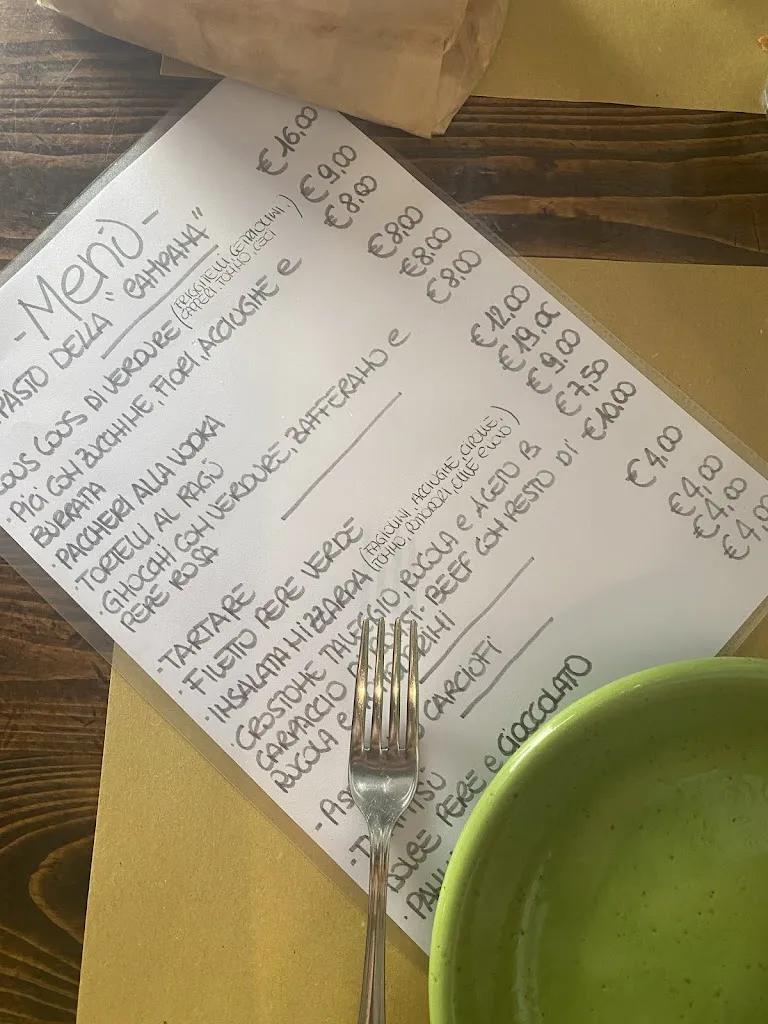 - Menù -
PASTO DELLA "CAMPANA" € 16,00
COUS COUS DI VERDURE (FRIGGITELLI, CETRIOLINI, € 9,00
CAPPERI, TONNO, CECI
• PICI CON ZUCCHINE, FIORI, ACCIUGHE E € 8,00
BURRATA
• PACCHERI ALLA VODKA € 8,00
• TORTELLI AL RAGÙ € 8,00
• GNOCCHI CON VERDURE, ZAFFERANO E € 8,00
PEPE ROSA
- TARTARE € 12,00
• FILETTO PEPE VERDE € 19,00
• INSALATA NIZZARDA (FAGIOLINI, ACCIUGHE, € 9,00
TONNO, POMODORI, OLIVE E UOVO)
• CROSTONE TALEGGIO, RUCOLA E ACETO B € 7,50
CARPACCIO BEEF CON PESTO DI € 10,00
RUCOLA E
CARCIOFI € 4,00
€ 4,00
DOLCE PERE E CIOCCOLATO € 4,00
€ 4,0